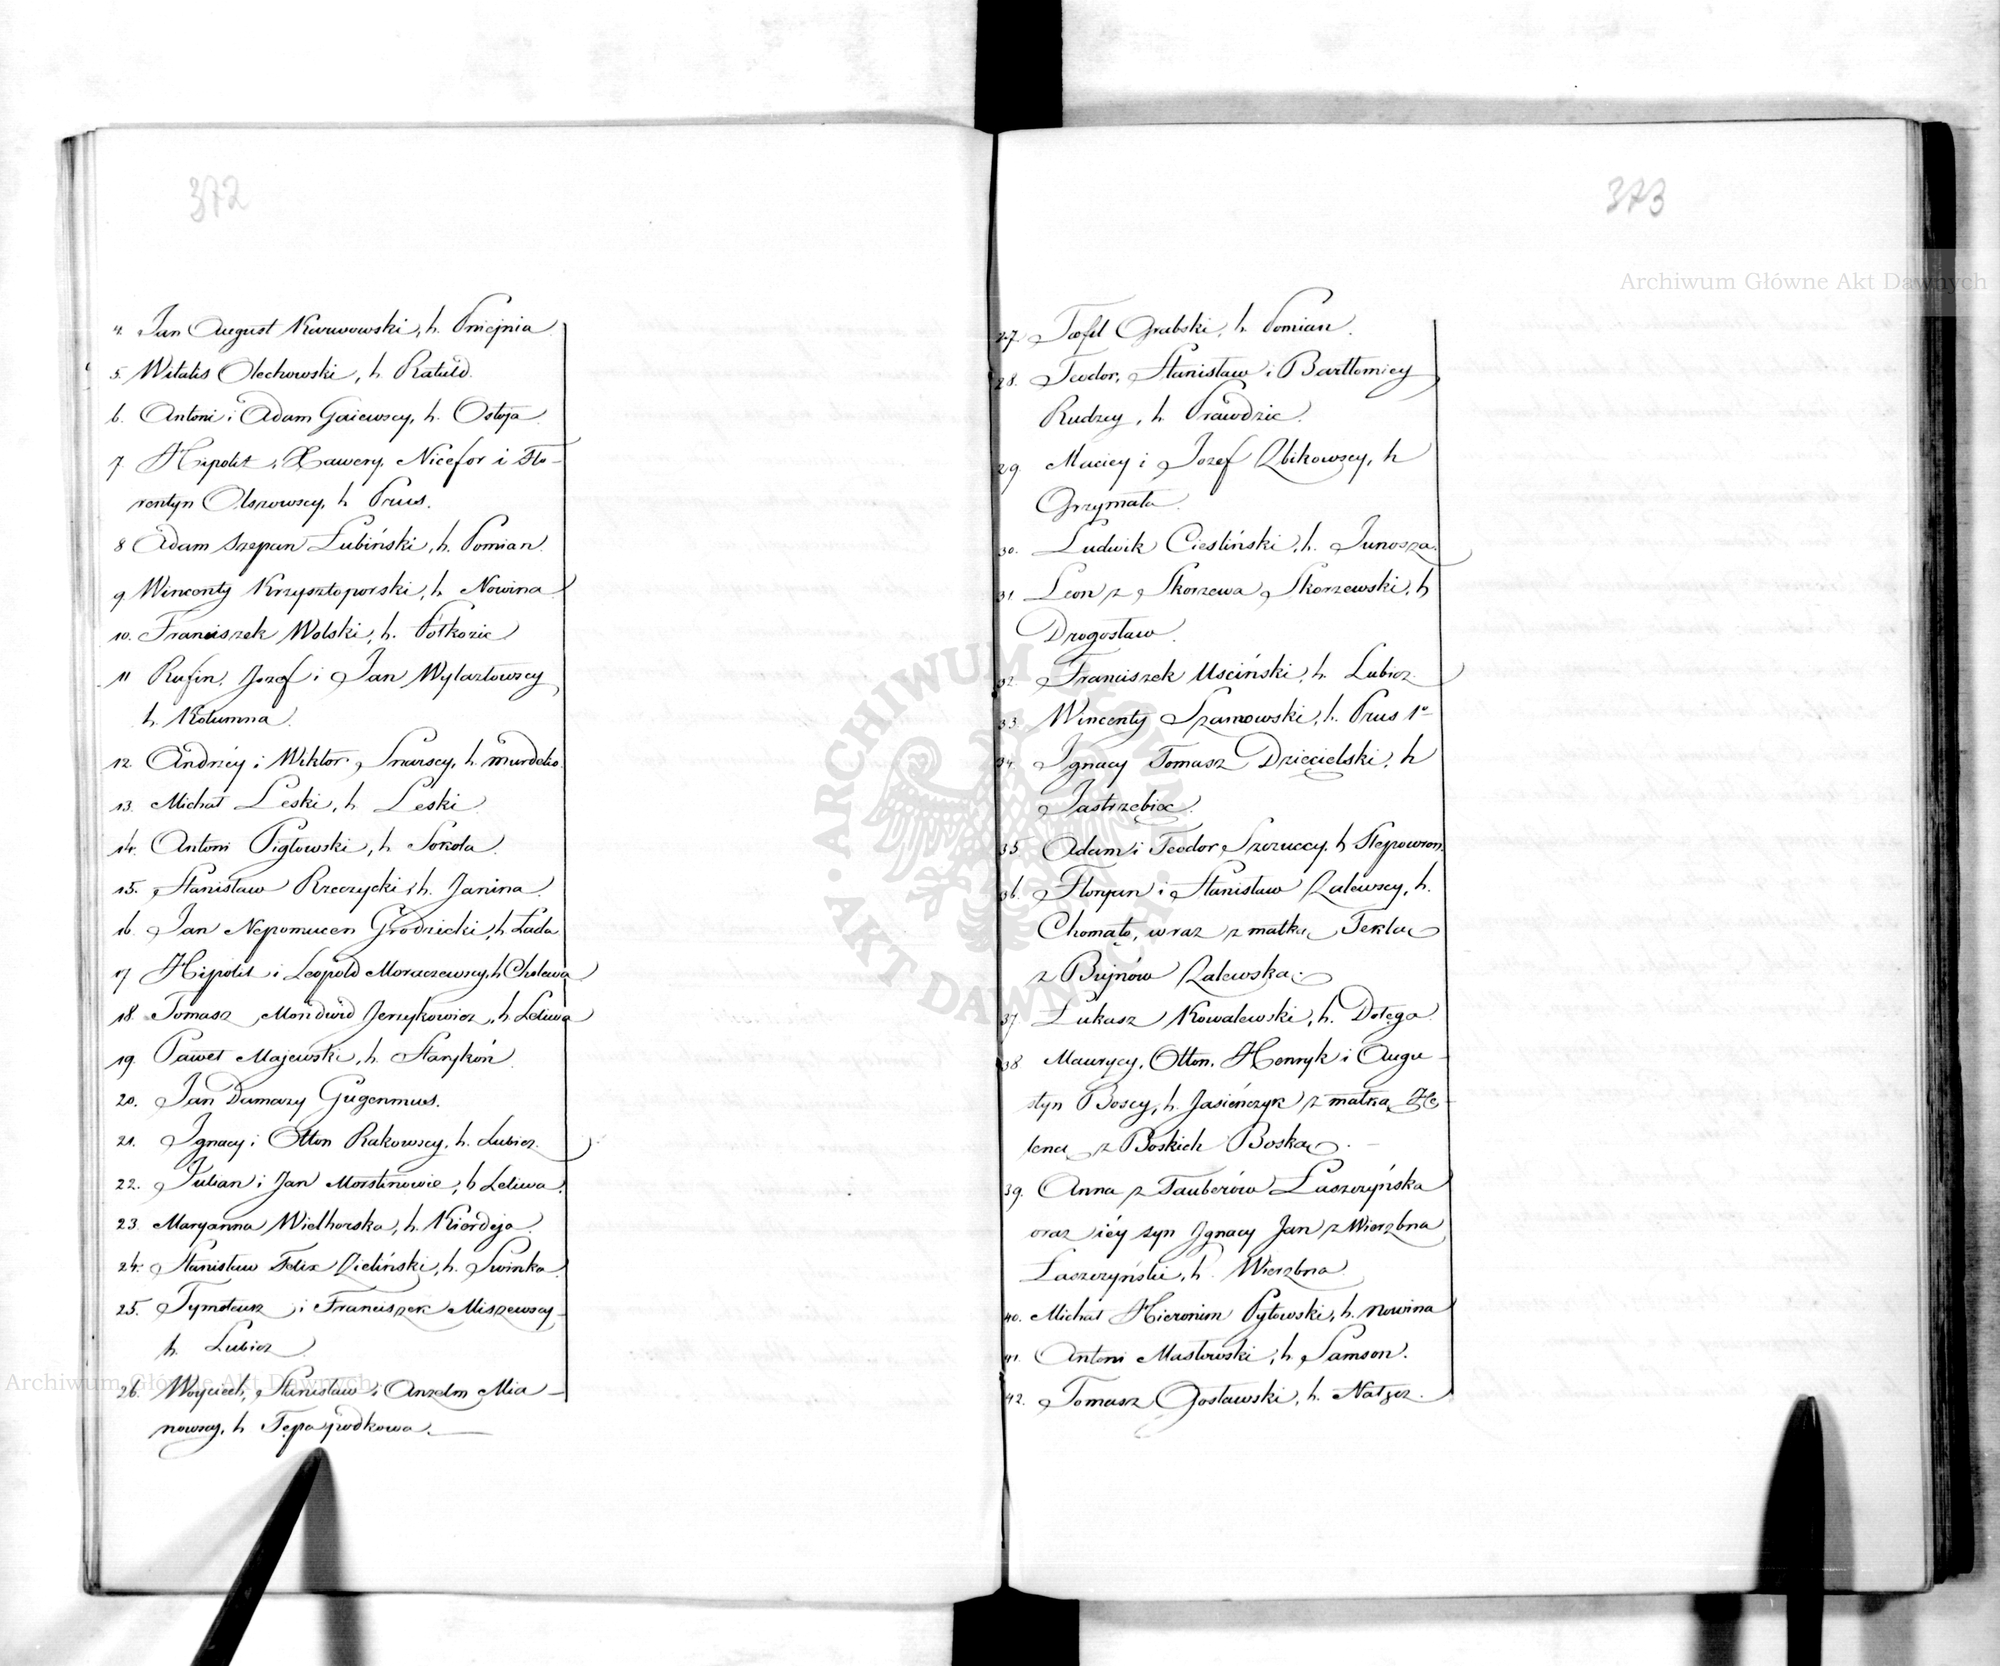 372
4. Jan August Karwowski, h. Pniejnia
5. Witalis Olechowski, h. Ratuld.
6. Antoni i Adam Gaiewscy, h. Ostoja
7. Hipolit, Xawery, Nicefor i Flo-
rentyn Olszowscy, h. Prus.
8 Adam Szczepan Łubiński, h. Pomian.
9 Wincenty Krzysztoporski, h. Nowina
10. Franciszek Wolski, h. Półkozic
11 Rufin, Jozef i Jan Wylazłowscy
h. Kolumna
12. Andrzéy i Wiktor Snarscy, h. murdelio.
13. Michał Leski, h. Leski
14. Antoni Pigłowski, h. Sokola.
15. Stanisław Rzeczycki, h. Janina
16. Jan Nepomucen Grodzicki, h. Łada
17 Hipolit i Leopold Moraczewscy, h Cholewa
18. Tomasz Mondwid Jerzykowicz, h. Leliwa
19. Paweł Majewski, h. Starykoń
20. Jan Damazy Gugenmus.
21. Ignacy i Otton Rakowscy, h. Lubicz.
22. Julian i Jan Morstinowie, h Leliwa.
23. Maryanna Wielhorska, h. Kierdeja.
24. Stanisław Felix Zieliński, h. Swinka
25. Tymoteusz i Franciszek Miszewscy
h. Lubicz
26. Woyciech, Stanisław i Anzelm Mia-
nowscy, h Tępa podkowa.
373
27. Teofil Grabski, h. Pomian.
28. Teodor, Stanisław i Bartłomiey
Rudzcy, h. Prawdzic
29 Maciey i Jozef Zbikowscy, h
Grzymała
30. Ludwik Ciesliński, h. Junosza.
31 Leon z Skorzewa Skorzewski, h
Drogosław.
32. Franciszek Usciński, h. Lubicz
33 Wincenty Szamowski, h. Prus 1º
34. Ignacy Tomasz Dzięcielski, h
Jastrzębiec
35 Adam i Teodor Szczuccy, h Slepowron.
36. Floryan i Stanisław Zalewscy, h.
Chomąto, wraz z matką Teklą
z Bujnów Zalewską.
37. Łukasz Kowalewski, h. Dołęga
38 Maurycy, Otton, Henryk i Augu-
styn Boscy, h. Jasieńczyk z matką He-
leną z Boskich Boską.
39. Anna z Tauberów Łaszczyńska
oraz iéy syn Ignacy Jan z Wierzbna
Łaszczyński, h. Wierzbna
40. Michał Hieronim Pytowski, h. nowina
41. Antoni Masłowski, h. Samson.
42. Tomasz Gosławski, h. Nałęcz.
Archiwum Główne Akt Dawnych
Archiwum Główne Akt Dawnych
ARCHIWUM GŁÓWNE · AKT DAWNYCH ·